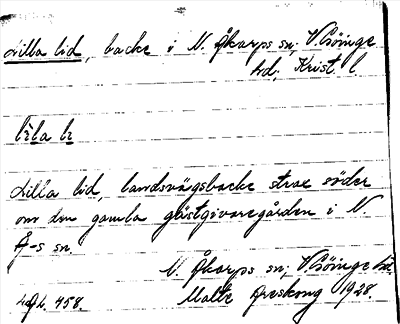 Lilla lid, backe i N. Åkarps sn, V. Göinge
hd, Krist. l.
lìla li
Lilla lid, landsvägsbacke strax söder
om den gamla gästgivaregården i N.
Å-s sn.
N. Åkarps sn, V. Göinge hd.
458. Malte Areskoug 1928.